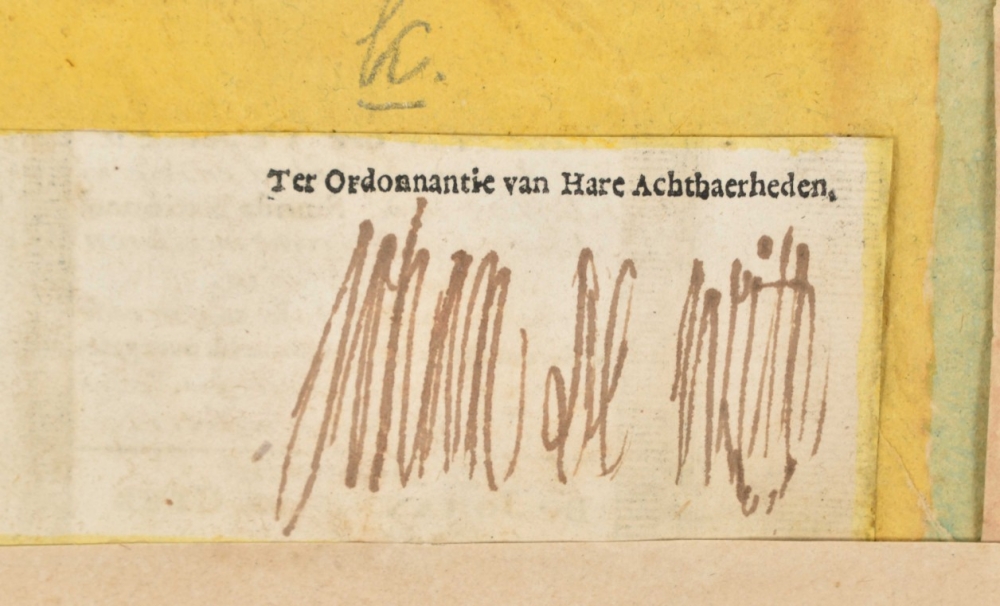 &c.
Ter Ordonnantie van Hare Achtbaerheden.
Johan de Witt